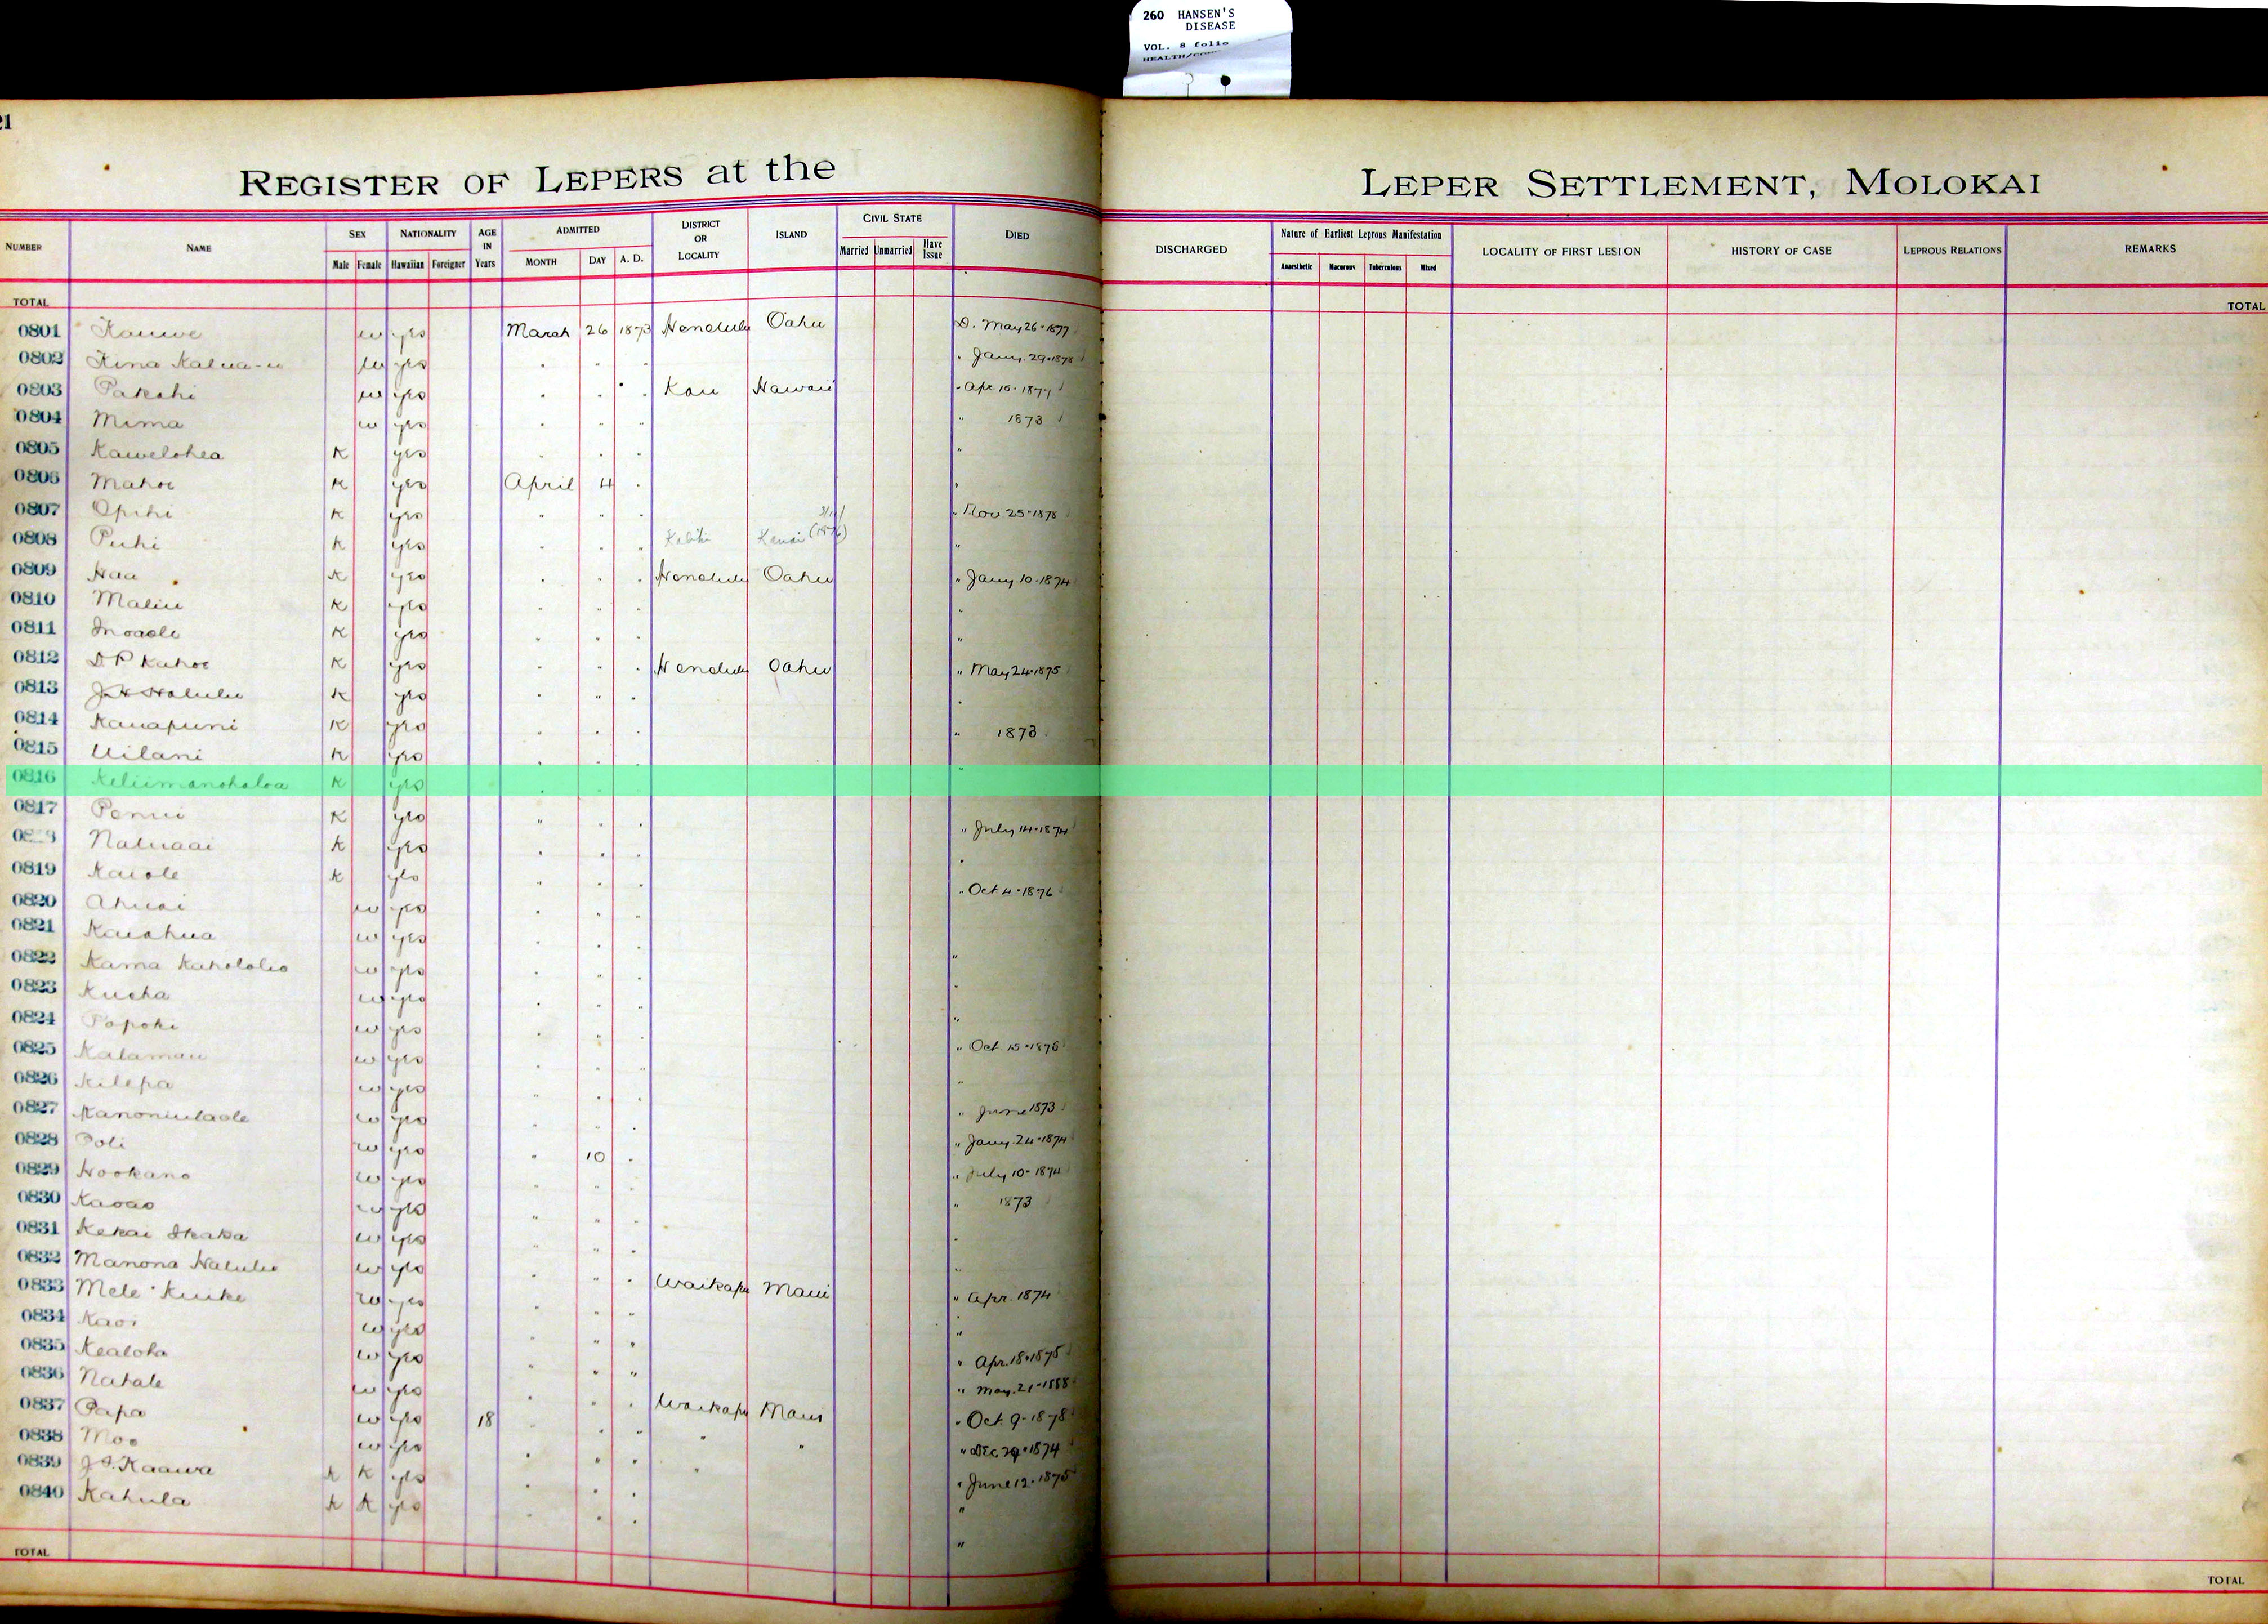 260 HANSEN'S
DISEASE
VOL. 8 folio
21
REGISTER OF LEPERS at the LEPER SETTLEMENT, MOLOKAI
NUMBER NAME SEX Male Female NATIONALITY Hawaiian Foreigner AGE IN Years ADMITTED MONTH DAY A. D. DISTRICT OR LOCALITY ISLAND CIVIL STATE Married Unmarried Have Issue DIED DISCHARGED Nature of Earliest Leprous Manifestation Anaesthetic Macurous Tuberculous Mixed LOCALITY OF FIRST LESION HISTORY OF CASE LEPROUS RELATIONS REMARKS
TOTAL TOTAL
0801 Kauwe w yes March 26 1873 Honolulu Oahu D. May 26-1877
0802 Kina Kalua-u w yes " " " " Jany. 29-1878
0803 Pakahi w yes " " " Kau Hawaii " Apr 10-1877
0804 Mima w yes " " " " 1873
0805 Kawelohea K yes " " " "
0806 Mahoe K yes April 4 " "
0807 Opihi K yes " " " " Nov 25-1878
0808 Puhi K yes " " " Kauai "
0809 Haa K yes " " " Honolulu Oahu " Jany 10-1874
0810 Maliu K yes " " " "
0811 Inoaole K yes " " " "
0812 D P Kahoe K yes " " " Honolulu Oahu " May 24-1875
0813 J H Halulu K yes " " " "
0814 Kauapuni K yes " " " " 1873
0815 Uilani K yes " " " "
0816 Keliimanohaloa K yes " " "
0817 Penui K yes " " " " July 14-1874
Naluaai K yes " " " "
0819 Kaiole K yes " " " " Oct 4-1876
0820 Ahuai w yes " " "
0821 Kaiahua w yes " " " "
0822 Kama Kahololio w yes " " " "
0823 Kueha w yes " " " "
0824 Popoki w yes " " " " Oct. 15-1875
0825 Kalamau w yes " " " "
0826 Kilepa w yes " " " " June 1873
0827 Kanoniulaole w yes " " " " Jany. 24-1874
0828 Poli w yes " 10 " " July 10-1874
0829 Hookano w yes " " " " 1873
0830 Kaoao w yes " " " "
0831 Kekai Ikaka w yes " " " "
0832 Manona Halulu w yes " " " Waikapu Maui " Apr. 1874
0833 Mele Kuike w yes " " " "
0834 Kaoi w yes " " " " Apr. 18-1875
0835 Kealoha w yes " " " " May. 21-1888
0836 Nahale w yes " " " Waikapu Maui " Oct. 9-1878
0837 Papa w yes 18 " " " " " " Dec. 29-1874
0838 Moo w yes " " " " " June 12-1875
0839 J. S. Kaawa K K yes " " " "
0840 Kahula K K yes " " " "
TOTAL TOTAL